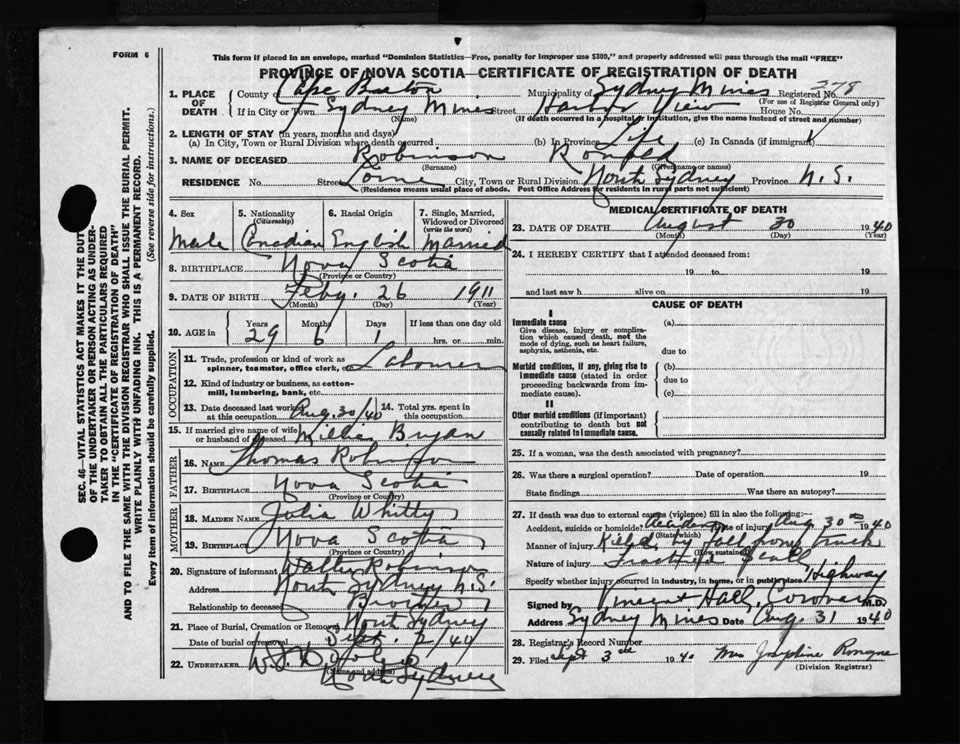 FORM 6
This form if placed in an envelope, marked "Dominion Statistics—Free, penalty for improper use $300," and properly addressed will pass through the mail "FREE"
PROVINCE OF NOVA SCOTIA—CERTIFICATE OF REGISTRATION OF DEATH
1. PLACE OF DEATH
County of Cape Breton Municipality of Sydney Mines Registered No. 378
(For use of Registrar General only)
If in City or Town Sydney Mines Street Harbor View House No.
(Name) (If death occurred in a hospital or institution, give the name instead of street and number)
2. LENGTH OF STAY (in years, months and days)
(a) In City, Town or Rural Division where death occurred (b) In Province Life (c) In Canada (if immigrant)
3. NAME OF DECEASED Robinson
(Surname) (Given name or names)
RESIDENCE No. Street Lorne City, Town or Rural Division North Sydney Province N.S.
(Residence means usual place of abode. Post Office Address for residents in rural parts not sufficient)
4. Sex
5. Nationality (Citizenship)
6. Racial Origin
7. Single, Married, Widowed or Divorced (write the word)
Male Canadian English Married
8. BIRTHPLACE Nova Scotia
(Province or Country)
9. DATE OF BIRTH Feby. 26 1911
(Month) (Day) (Year)
10. AGE in
Years Months Days If less than one day old
29 6 hrs. or min.
OCCUPATION
11. Trade, profession or kind of work as spinner, teamster, office clerk, etc. Laborer
12. Kind of industry or business, as cotton-mill, lumbering, bank, etc.
13. Date deceased last worked at this occupation Aug. 30/40
14. Total yrs. spent in this occupation
15. If married give name of wife or husband of deceased Millie Bryan
FATHER
16. NAME Thomas Robinson
17. BIRTHPLACE Nova Scotia
(Province or Country)
MOTHER
18. MAIDEN NAME Julia Whitty
19. BIRTHPLACE Nova Scotia
(Province or Country)
20. Signature of informant Walter Robinson
Address North Sydney N.S.
Relationship to deceased Brother
21. Place of Burial, Cremation or Removal North Sydney
Date of burial or removal Sept. 2/40
22. UNDERTAKER
(Name and address)
North Sydney
MEDICAL CERTIFICATE OF DEATH
23. DATE OF DEATH August 30 1940
(Month) (Day) (Year)
24. I HEREBY CERTIFY that I attended deceased from:
19 to 19
and last saw h alive on 19
CAUSE OF DEATH
I
Immediate cause
Give disease, injury or complication which caused death, not the mode of dying, such as heart failure, asphyxia, asthenia, etc.
(a)
due to
Morbid conditions, if any, giving rise to immediate cause (stated in order proceeding backwards from immediate cause).
(b)
due to
(c)
II
Other morbid conditions (if important) contributing to death but not causally related to immediate cause.
25. If a woman, was the death associated with pregnancy?
26. Was there a surgical operation? Date of operation 19
State findings Was there an autopsy?
27. If death was due to external causes (violence) fill in also the following:—
Accident, suicide or homicide? Accident Date of injury Aug 30th 1940
(State which)
Manner of injury Killed by fall from truck
(How sustained)
Nature of injury Fractured Skull
Specify whether injury occurred in industry, in home, or in public place Highway
Signed by Vincent Hall, Coroner M.D.
Address Sydney Mines Date Aug. 31 1940
28. Registrar's Record Number
29. Filed Sept 3rd 1940 Mrs Josephine
(Division Registrar)
SEC. 46—VITAL STATISTICS ACT MAKES IT THE DUTY
OF THE UNDERTAKER OR PERSON ACTING AS UNDER-
TAKER TO OBTAIN ALL THE PARTICULARS REQUIRED
IN THE "CERTIFICATE OF REGISTRATION OF DEATH"
AND TO FILE THE SAME WITH THE DIVISION REGISTRAR WHO SHALL ISSUE THE BURIAL PERMIT.
WRITE PLAINLY WITH UNFADING INK. THIS IS A PERMANENT RECORD.
Every item of information should be carefully supplied. (See reverse side for instructions.)